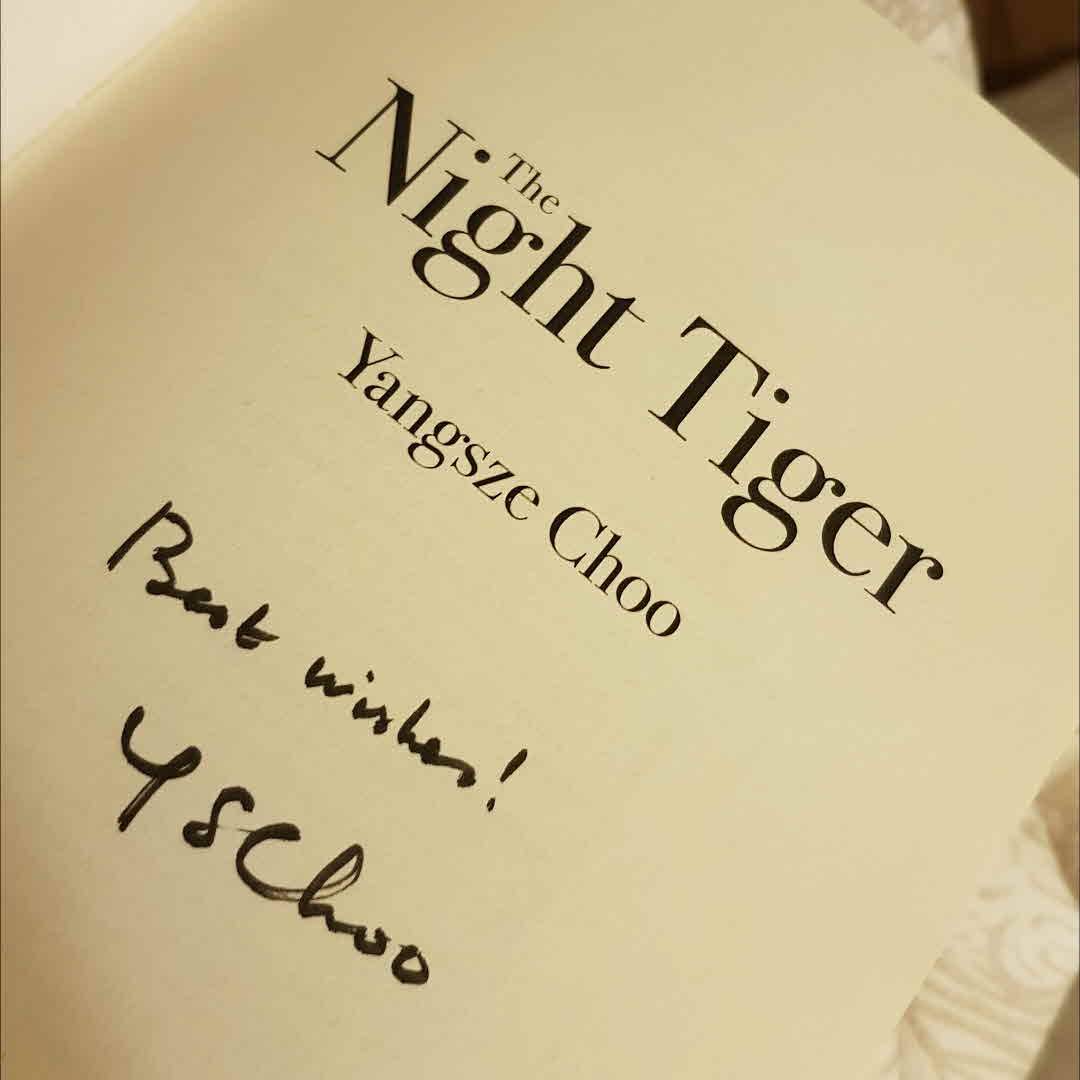 The
Night Tiger
Yangsze Choo
Best wishes!
YSChoo